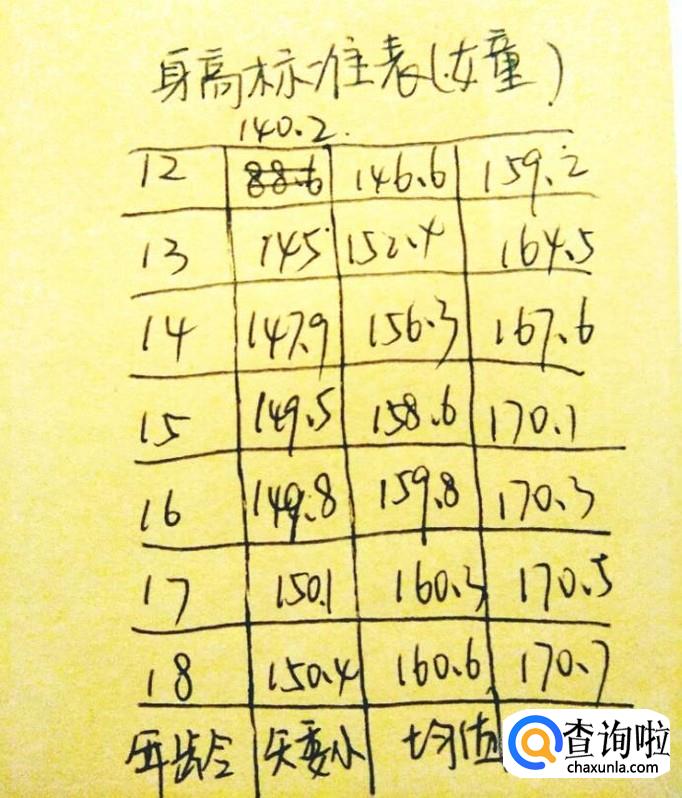 身高标准表(女童)
140.2.
12 88.6 146.6 159.2
13 145 152.4 164.5
14 147.9 156.3 167.6
15 149.5 158.6 170.1
16 149.8 159.8 170.3
17 150.1 160.3 170.5
18 150.4 160.6 170.7
年龄 矮小 均值
查询啦
chaxunla.com